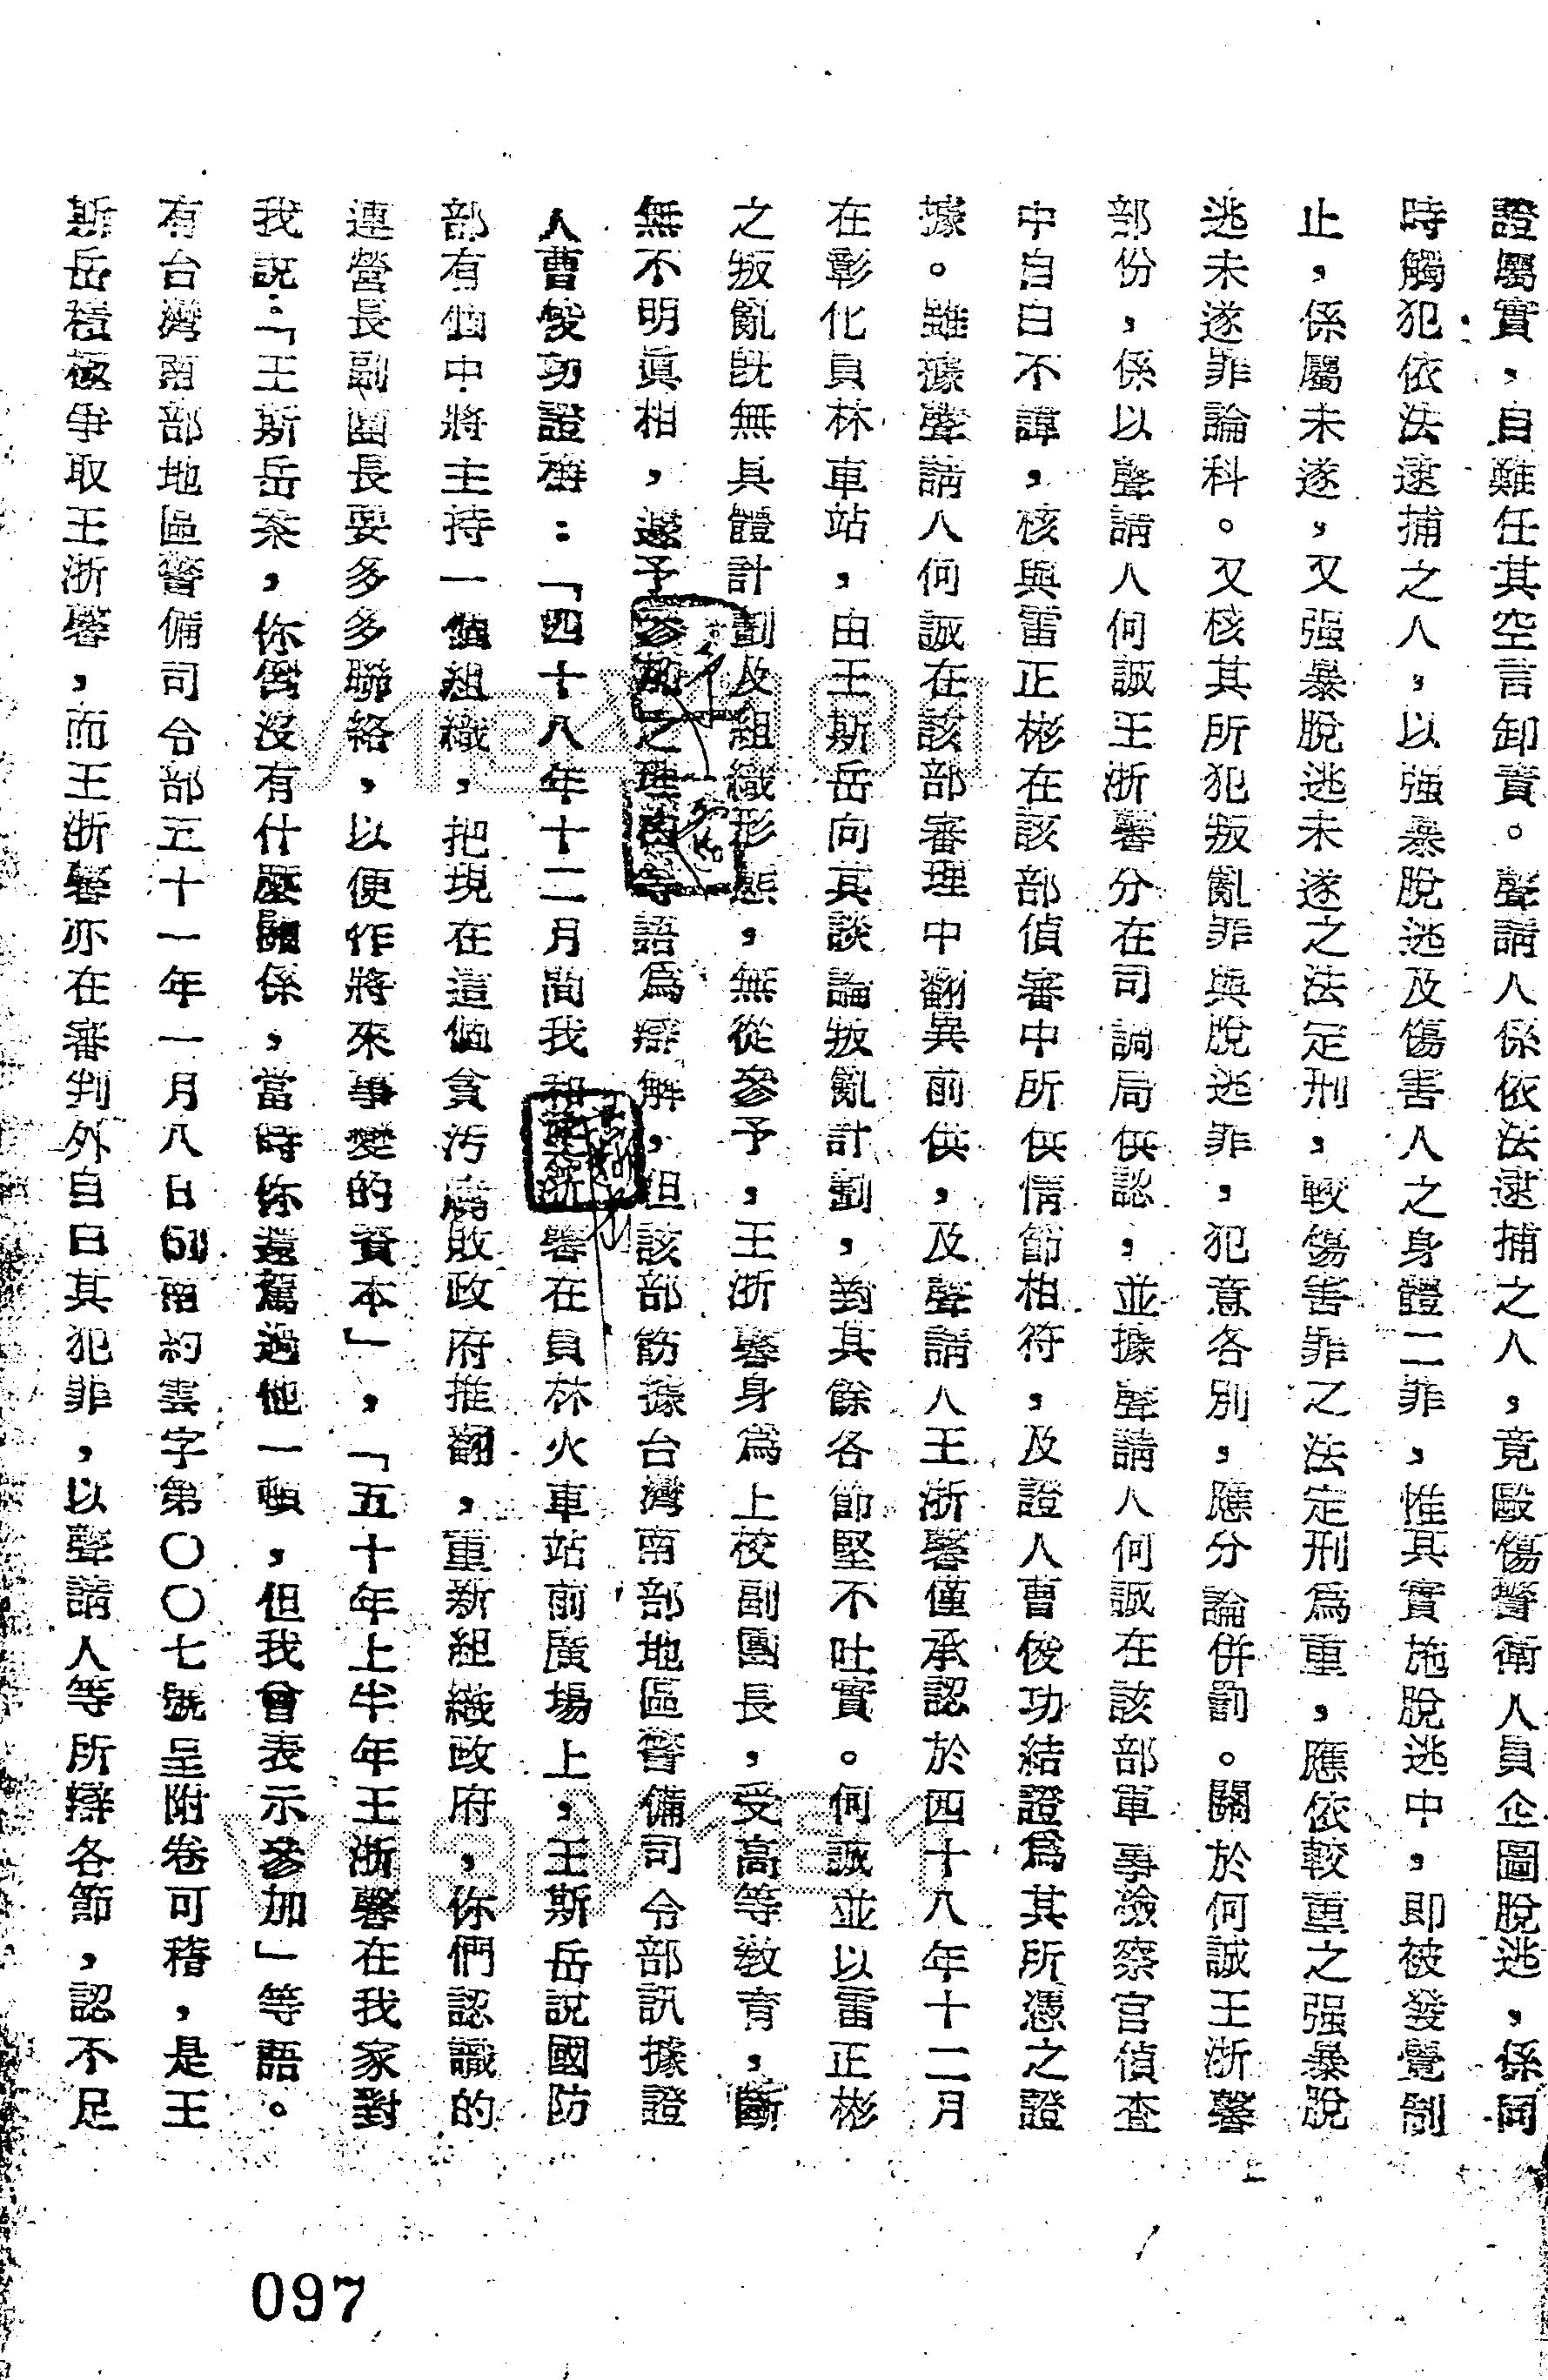 證屬實，自難任其空言卸責。聲請人係依法逮捕之人，竟毆傷警衛人員企圖脫逃，係同
時觸犯依法逮捕之人，以强暴脫逃及傷害人之身體二罪，惟其實施脫逃中，即被發覺制
止，係屬未遂，又强暴脫逃未遂之法定刑，較傷害罪之法定刑為重，應依較重之强暴脫
逃未遂罪論科。又核其所犯叛亂罪與脫逃罪，犯意各別，應分論併罰。關於何誠王浙馨
部份，係以聲請人何誠王浙馨分在司調局供認，並據聲請人何誠在該部軍事檢察官偵查
中自白不諱，核與雷正彬在該部偵審中所供情節相符，及證人曹俊功結證為其所憑之證
據。雖據聲請人何誠在該部審理中翻異前供，及聲請人王浙馨僅承認於四十八年十二月
在彰化員林車站，由王斯岳向其談論叛亂計劃，對其餘各節堅不吐實。何誠並以雷正彬
之叛亂旣無具體計劃及組織形態，無從參予，王浙馨身為上校副團長，受高等敎育，斷
無不明眞相，遽予參加之理由等語為辯解，但該部飭據台灣南部地區警備司令部訊據證
人曹俊功證稱：「四十八年十二月間我和王浙馨在員林火車站前廣場上，王斯岳說國防
部有個中將主持一個組織，把現在這個貪汚腐敗政府推翻，重新組織政府，你們認識的
連營長副團長要多多聯絡，以便作將來事變的資本」，「五十年上半年王浙馨在我家對
我說：「王斯岳案，你倒沒有什麼關係，當時你還罵過他一頓，但我曾表示參加」等語。
有台灣南部地區警備司令部五十一年一月八日(51)南約雲字第〇〇七號呈附卷可稽，是王
斯岳積極爭取王浙馨，而王浙馨亦在審判外自白其犯罪，以聲請人等所辯各節，認不足
097